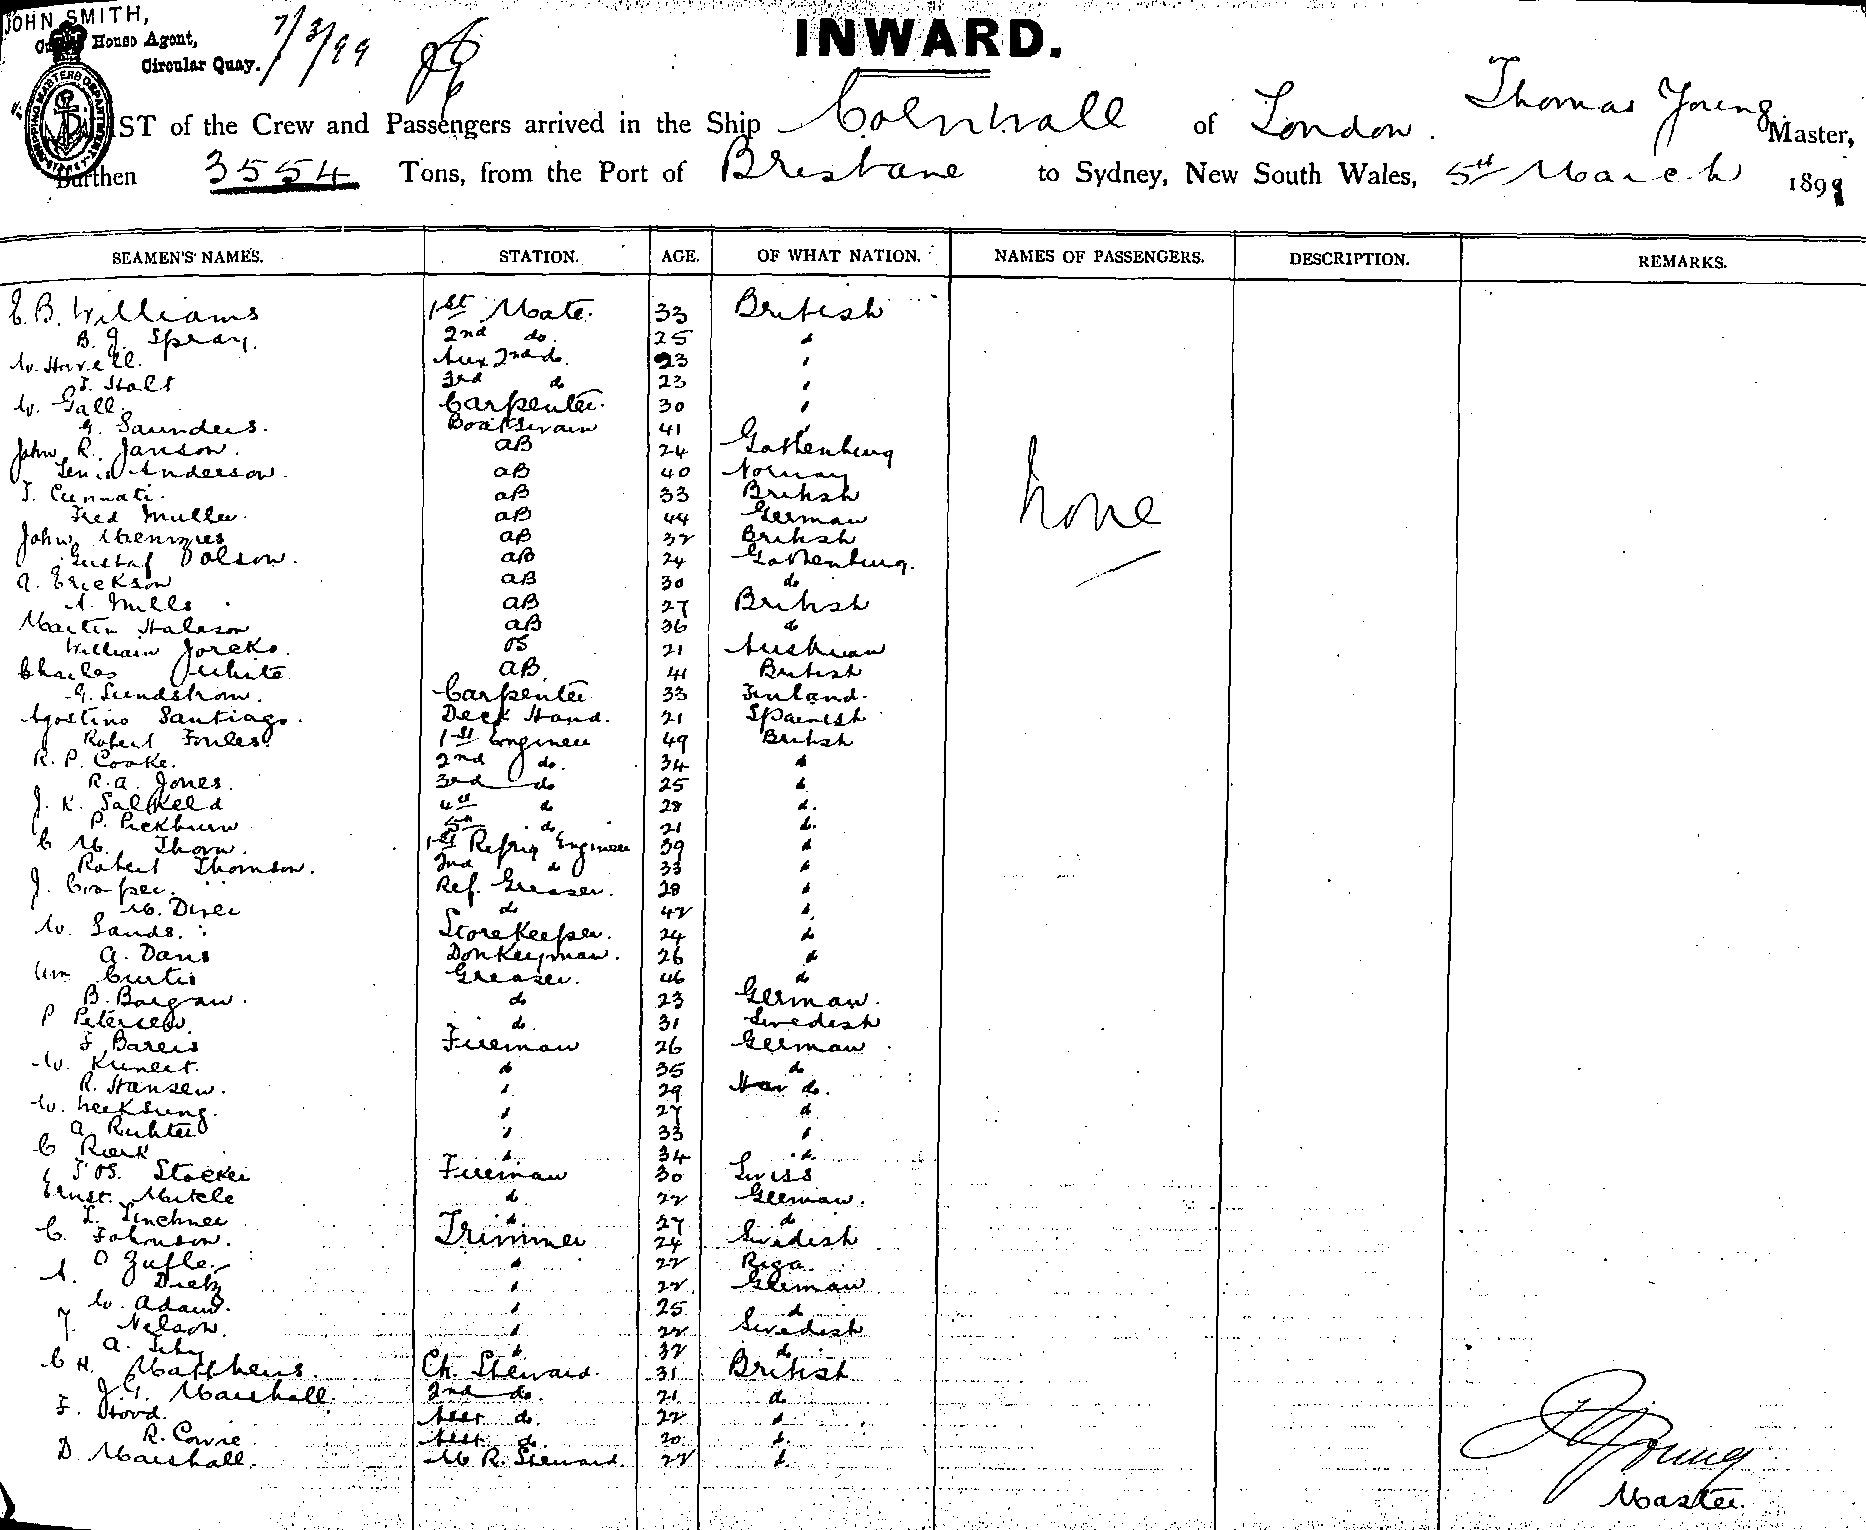 JOHN SMITH,
House Agent,
Circular Quay.
7/3/99
INWARD.
LIST of the Crew and Passengers arrived in the Ship Cornwall of London. Thomas Young Master,
Burthen 3554 Tons, from the Port of Brisbane to Sydney, New South Wales, 5th March 1899
SEAMEN'S NAMES. STATION. AGE. OF WHAT NATION. NAMES OF PASSENGERS. DESCRIPTION. REMARKS.
E. B. Williams 1st Mate. 33 British
B. J. Spray. 2nd do. 25 "
W. Havell. Aux 2nd do. 23 "
T. Holt 3rd do 23 "
W. Gall. Carpenter. 30 "
G. Saunders. Boatswain 41 "
John R. Janson. AB 24 Gothenburg
Anderson. AB 40 Norway
J. AB 33 British
Fred Muller. AB 44 German
John Menzies AB 32 British
Gustaf Oolson. AB 24 Gothenburg.
A. Erickson AB 30 do
A. Mills AB 27 British
Martin AB 36 do
William Joreks. OS 21 Austrian
Charles White AB 41 British
G. Sundstrom. Carpenter 33 Finland.
Agostino Santiago. Deck Hand. 21 Spanish
Robert Foules. 1st Engineer 49 British
R. P. Cooke. 2nd do. 34 "
R. A. Jones. 3rd do 25 "
J. K. Salkeld 4th do 28 "
P. Pickburn 5th do 21 "
C. M. Thorn. 1st Refrig Engineer 39 "
Robert Thomson. 2nd do 33 "
J. Cooper. Ref. Greaser. 28 "
M. do 42 "
W. Sands. Storekeeper. 24 do
A. Davis Donkeyman. 26 "
Wm Curtis Greaser. 46 do
B. Bargan. do 23 German.
P Petersen. do. 31 Swedish
F Bareis Fireman 26 German
W. Kunert. do 35 do
R. Hansen. " 29 do.
W. " 27 do
A Richter " 33 "
C Rock " 34 do
Jos. Stocker Fireman 30 Swiss
Ernst do 22 German.
L. do. 27 do
C. Johnson. Trimmer 24 Swedish
O Zufle. " 22 Riga.
A. Dietz " 22 German
W. Adams. " 25 do
J. Nelson. " 22 Swedish
A. " 32 do
C H. Matthews. Ch. Steward. 31 British
J. T. Marshall. 2nd do. 21 do
F. Stovd. Asst do. 22 "
R. Cowie. Asst do. 20 "
D Marshall. M R. Steward. 22 "
None
Young
Master.